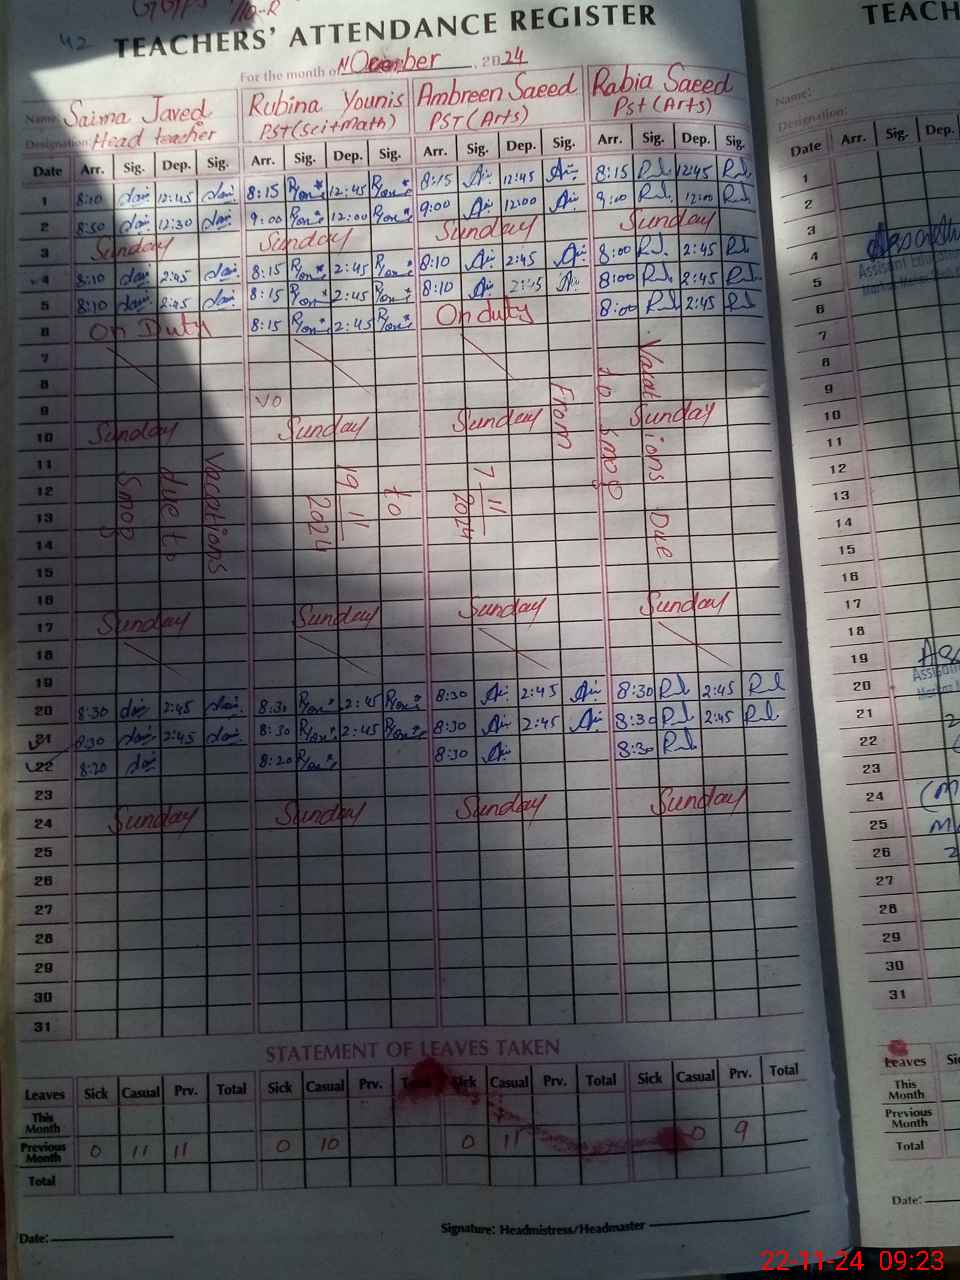 42
TEACHERS' ATTENDANCE REGISTER
TEACH
For the month of November, 2024
Name: Saima Javed Rubina Younis Ambreen Saeed Rabia Saeed
Name:
Designation: Head teacher PST(Sci+math) PST(Arts) Pst(Arts)
Designation:
Date Arr. Sig. Dep. Sig. Arr. Sig. Dep. Sig. Arr. Sig. Dep. Sig. Arr. Sig. Dep. Sig.
Date Arr. Sig. Dep.
1 8:10 12:45 8:15 12:45 8:15 12:45 8:15 12:45
2 8:50 12:30 9:00 12:00 9:00 12:00 9:00 12:00
3 Sunday Sunday Sunday Sunday
4 8:10 2:45 8:15 2:45 8:10 2:45 8:00 2:45
5 8:10 2:45 8:15 2:45 8:10 2:45 8:00 2:45
6 On Duty 8:15 2:45 On duty 8:00 2:45
7
8
9
10 Sunday Sunday Sunday Sunday
11
12
13
14
15
16
17 Sunday Sunday Sunday Sunday
18
19
20 8:30 2:45 8:30 2:45 8:30 2:45 8:30 2:45
21 8:30 2:45 8:30 2:45 8:30 2:45 8:30 2:45
22 8:20 8:20 8:30 8:30
23
24 Sunday Sunday Sunday Sunday
25
26
27
28
29
30
31
Vacations
due to
Smog
to
19
11
2024
From
7-11
2024
Vacations Due
to Smog
STATEMENT OF LEAVES TAKEN
Leaves Sick Casual Prv. Total Sick Casual Prv. Total Sick Casual Prv. Total Sick Casual Prv. Total
This Month
Previous Month 0 11 11 0 10 0 11 0 9
Total
Date:
Signature: Headmistress/Headmaster
1
2
3
4
5
6
7
8
9
10
11
12
13
14
15
16
17
18
19
20
21
22
23
24
25
26
27
28
29
30
31
Leaves
This Month
Previous Month
Total
Date:
22-11-24 09:23